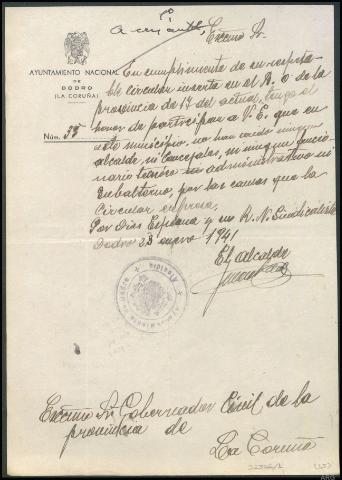 Excmo Sr.
AYUNTAMIENTO NACIONAL
DE
DODRO
(LA CORUÑA)
Núm. 55
En cumplimiento de su respeta-
ble circular inserta en el B. O de la
provincia de 17 del actual, tengo el
honor de participar a V. E. que en
este municipio no han caido ningun
alcalde, ni Concejales, ni ningun funcio-
nario tecnico administrativo ni
subalterno, por las causas que la
Circular expresa.
Por Dios España y su R. N. Sindicalista
Dodro 23 enero 1941
El alcalde
Alcaldía
Excmo Sr Gobernador Civil de la
provincia de
La Coruña